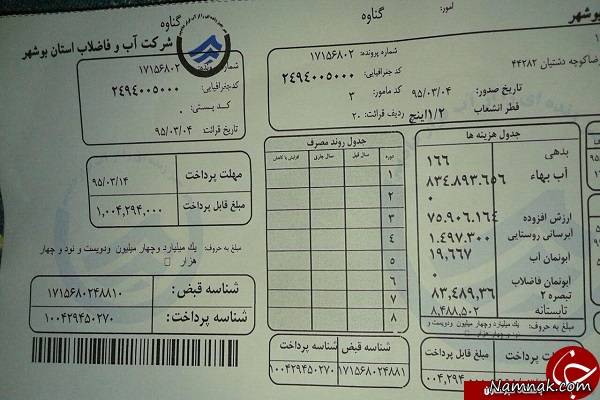 بوشهر
امور: گناوه
شماره پرونده: ۱۷۱۵۶۸۰۲
کد جغرافیایی: ۲۴۹۴۰۰۵۰۰۰
کد مامور: ۳
ردیف قرائت: ۲۰
رضاکوچه دشتیان ۴۴۲۸۲
تاریخ صدور: ۹۵/۰۳/۰۴
قطر انشعاب ۱/۲اینچ
جدول هزینه ها
بدهی ۱۶۶
آب بهاء ۸۳۴,۸۹۳,۶۵۶
۰
ارزش افزوده ۷۵,۹۰۶,۱۶۴
آبرسانی روستایی ۱,۴۹۷,۳۰۰
آبونمان آب ۱۹,۶۶۷
آبونمان فاضلاب ۰
تبصره ۲ ۸۳,۴۸۹,۳۶
تابستانه ۸,۴۸۸,۵۰۲
مبلغ به حروف: یك میلیارد وچهار میلیون ودویست و
مهلت پرداخت
مبلغ قابل پرداخت
۰۰۴,۲۹۴,۰۰۰
جدول روند مصرف
دوره سال قبل سال جاری افزایش یا کاهش
۱
۲
۳
۴
۵
۶
۷
۸
شناسه قبض شناسه پرداخت
۱۷۱۵۶۸۰۲۴۸۸۱ ۱۰۰۴۲۹۴۵۰۲۷۰
گناوه
شرکت آب و فاضلاب استان بوشهر
شماره پرونده: ۱۷۱۵۶۸۰۲
کدجغرافیایی: ۲۴۹۴۰۰۵۰۰۰
کد پستی: ۰
تاریخ قرائت: ۹۵/۰۳/۰۴
مهلت پرداخت ۹۵/۰۳/۱۴
مبلغ قابل پرداخت ۱,۰۰۴,۲۹۴,۰۰۰
مبلغ به حروف: یك میلیارد وچهار میلیون ودویست و نود و چهار
هزار
شناسه قبض: ۱۷۱۵۶۸۰۲۴۸۸۱۰
شناسه پرداخت: ۱۰۰۴۲۹۴۵۰۲۷۰
Namnak.com